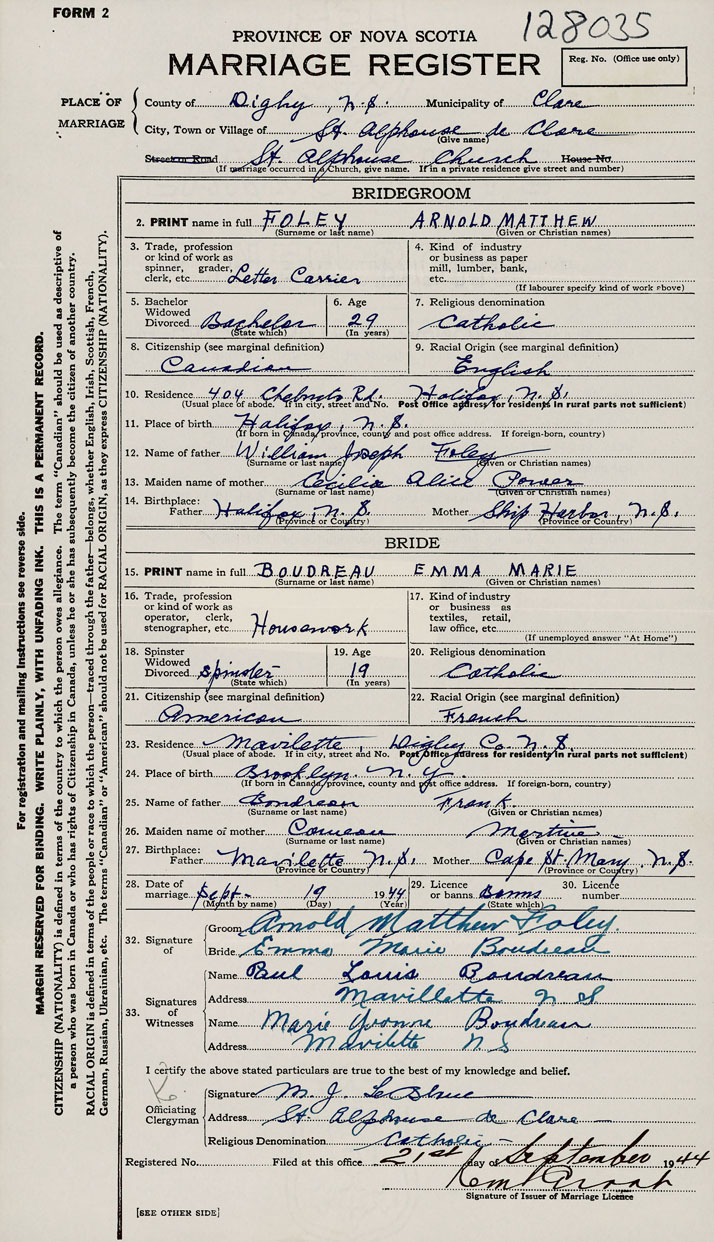 FORM 2
128035
PROVINCE OF NOVA SCOTIA
MARRIAGE REGISTER
Reg. No. (Office use only)
PLACE OF MARRIAGE
County of Digby, N.S. Municipality of Clare
City, Town or Village of St. Alphonse de Clare
(Give name)
Street or Road St. Alphonse Church House No.
(If marriage occurred in a Church, give name. If in a private residence give street and number)
BRIDEGROOM
2. PRINT name in full FOLEY ARNOLD MATTHEW
(Surname or last name) (Given or Christian names)
3. Trade, profession or kind of work as spinner, grader, clerk, etc. Letter Carrier
4. Kind of industry or business as paper mill, lumber, bank, etc.
(If labourer specify kind of work above)
5. Bachelor Widowed Divorced Bachelor
(State which)
6. Age 29
(In years)
7. Religious denomination
Catholic
8. Citizenship (see marginal definition)
Canadian
9. Racial Origin (see marginal definition)
English
10. Residence 404 Chebucto Rd. Halifax, N.S.
(Usual place of abode. If in city, street and No. Post Office address for residents in rural parts not sufficient)
11. Place of birth Halifax, N.S.
(If born in Canada, province, county and post office address. If foreign-born, country)
12. Name of father William Joseph Foley
(Surname or last name) (Given or Christian names)
13. Maiden name of mother Cecilia Alice Power
(Surname or last name) (Given or Christian names)
14. Birthplace: Father Halifax, N.S. Mother Ship Harbor, N.S.
(Province or Country) (Province or Country)
BRIDE
15. PRINT name in full BOUDREAU EMMA MARIE
(Surname or last name) (Given or Christian names)
16. Trade, profession or kind of work as operator, clerk, stenographer, etc. Housework
17. Kind of industry or business as textiles, retail, law office, etc.
(If unemployed answer "At Home")
18. Spinster Widowed Divorced Spinster
(State which)
19. Age 19
(In years)
20. Religious denomination
Catholic
21. Citizenship (see marginal definition)
American
22. Racial Origin (see marginal definition)
French
23. Residence Mavilette, Digby Co. N.S.
(Usual place of abode. If in city, street and No. Post Office address for residents in rural parts not sufficient)
24. Place of birth Brooklyn. N.Y.
(If born in Canada, province, county and post office address. If foreign-born, country)
25. Name of father Boudreau Frank
(Surname or last name) (Given or Christian names)
26. Maiden name of mother Comeau Martine
(Surname or last name) (Given or Christian names)
27. Birthplace: Father Mavilette N.S. Mother Cape St. Mary, N.S.
(Province or Country) (Province or Country)
28. Date of marriage Sept. 19 1944
(Month by name) (Day) (Year)
29. Licence or banns Banns
(State which)
30. Licence number
32. Signature of
Groom Arnold Matthew Foley.
Bride Emma Marie Boudreau
33. Signatures of Witnesses
Name Paul Louis Boudreau
Address Mavillette N S
Name Marie Yvonne Boudreau
Address Mavilette N.S
I certify the above stated particulars are true to the best of my knowledge and belief.
Officiating Clergyman
Signature M. J. LeBlanc
Address St. Alphonse de Clare
Religious Denomination Catholic
Registered No. Filed at this office 21st day of September 1944
Signature of Issuer of Marriage Licence
[SEE OTHER SIDE]
For registration and mailing instructions see reverse side.
MARGIN RESERVED FOR BINDING. WRITE PLAINLY, WITH UNFADING INK. THIS IS A PERMANENT RECORD.
CITIZENSHIP (NATIONALITY) is defined in terms of the country to which the person owes allegiance. The term "Canadian" should be used as descriptive of
a person who was born in Canada or who has rights of Citizenship in Canada, unless he or she has subsequently become the citizen of another country.
RACIAL ORIGIN is defined in terms of the people or race to which the person—traced through the father—belongs, whether English, Irish, Scottish, French,
German, Russian, Ukrainian, etc. The terms "Canadian" or "American" should not be used for RACIAL ORIGIN, as they express CITIZENSHIP (NATIONALITY).